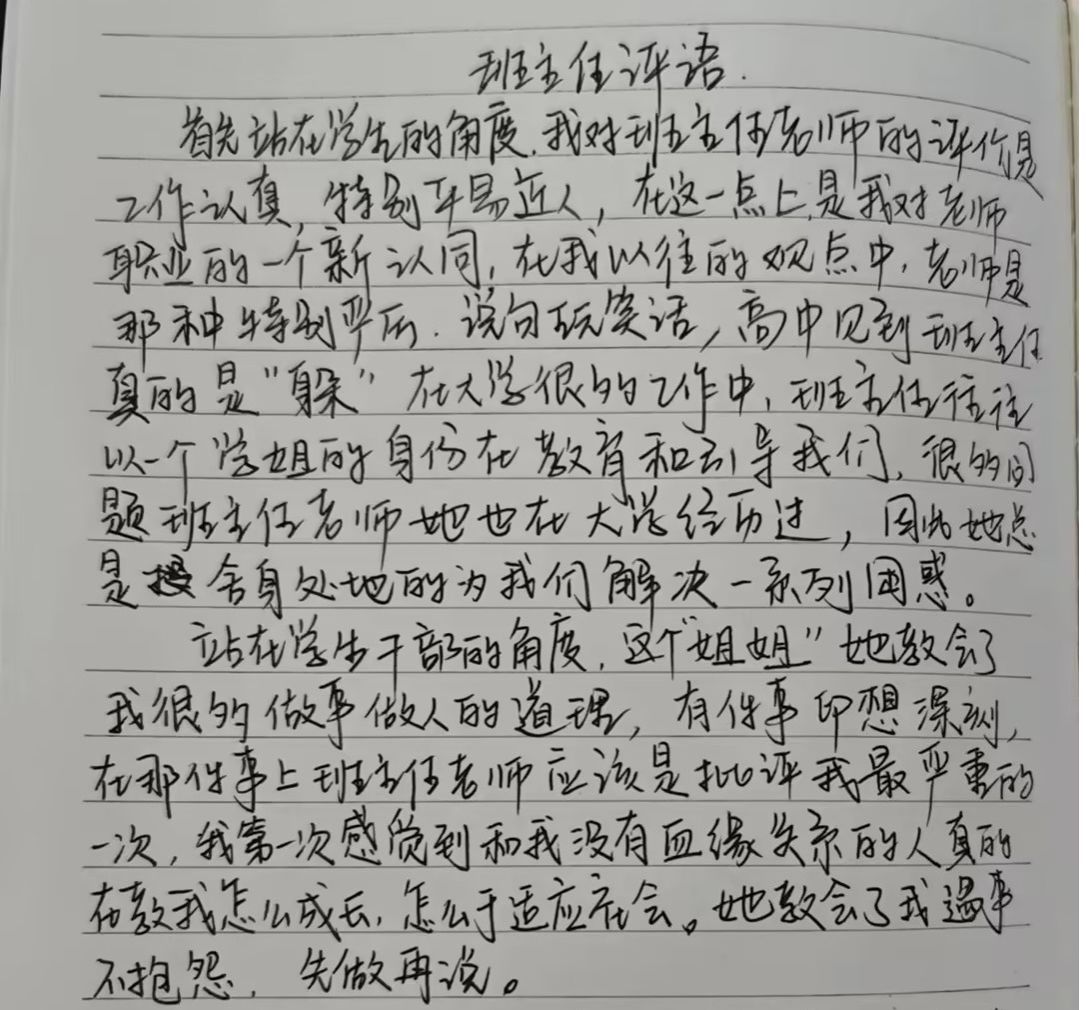 班主任评语.
首先站在学生的角度,我对班主任老师的评价是
工作认真,特别平易近人,在这一点上,是我对老师
职业的一个新认同,在我以往的观点中,老师是
那种特别严厉.说句玩笑话,高中见到班主任
真的是“躲”在大学很多的工作中,班主任往往
以一个学姐的身份在教育和引导我们,很多问
题班主任老师她也在大学经历过,因此她总
是舍身处地的为我们解决一系列困惑。
站在学生干部的角度,这个“姐姐”她教会了
我很多做事做人的道理,有件事印想深刻,
在那件事上班主任老师应该是批评我最严重的
一次,我第一次感觉到和我没有血缘关系的人真的
在教我怎么成长,怎么于适应社会。她教会了我遇事
不抱怨,先做再说。